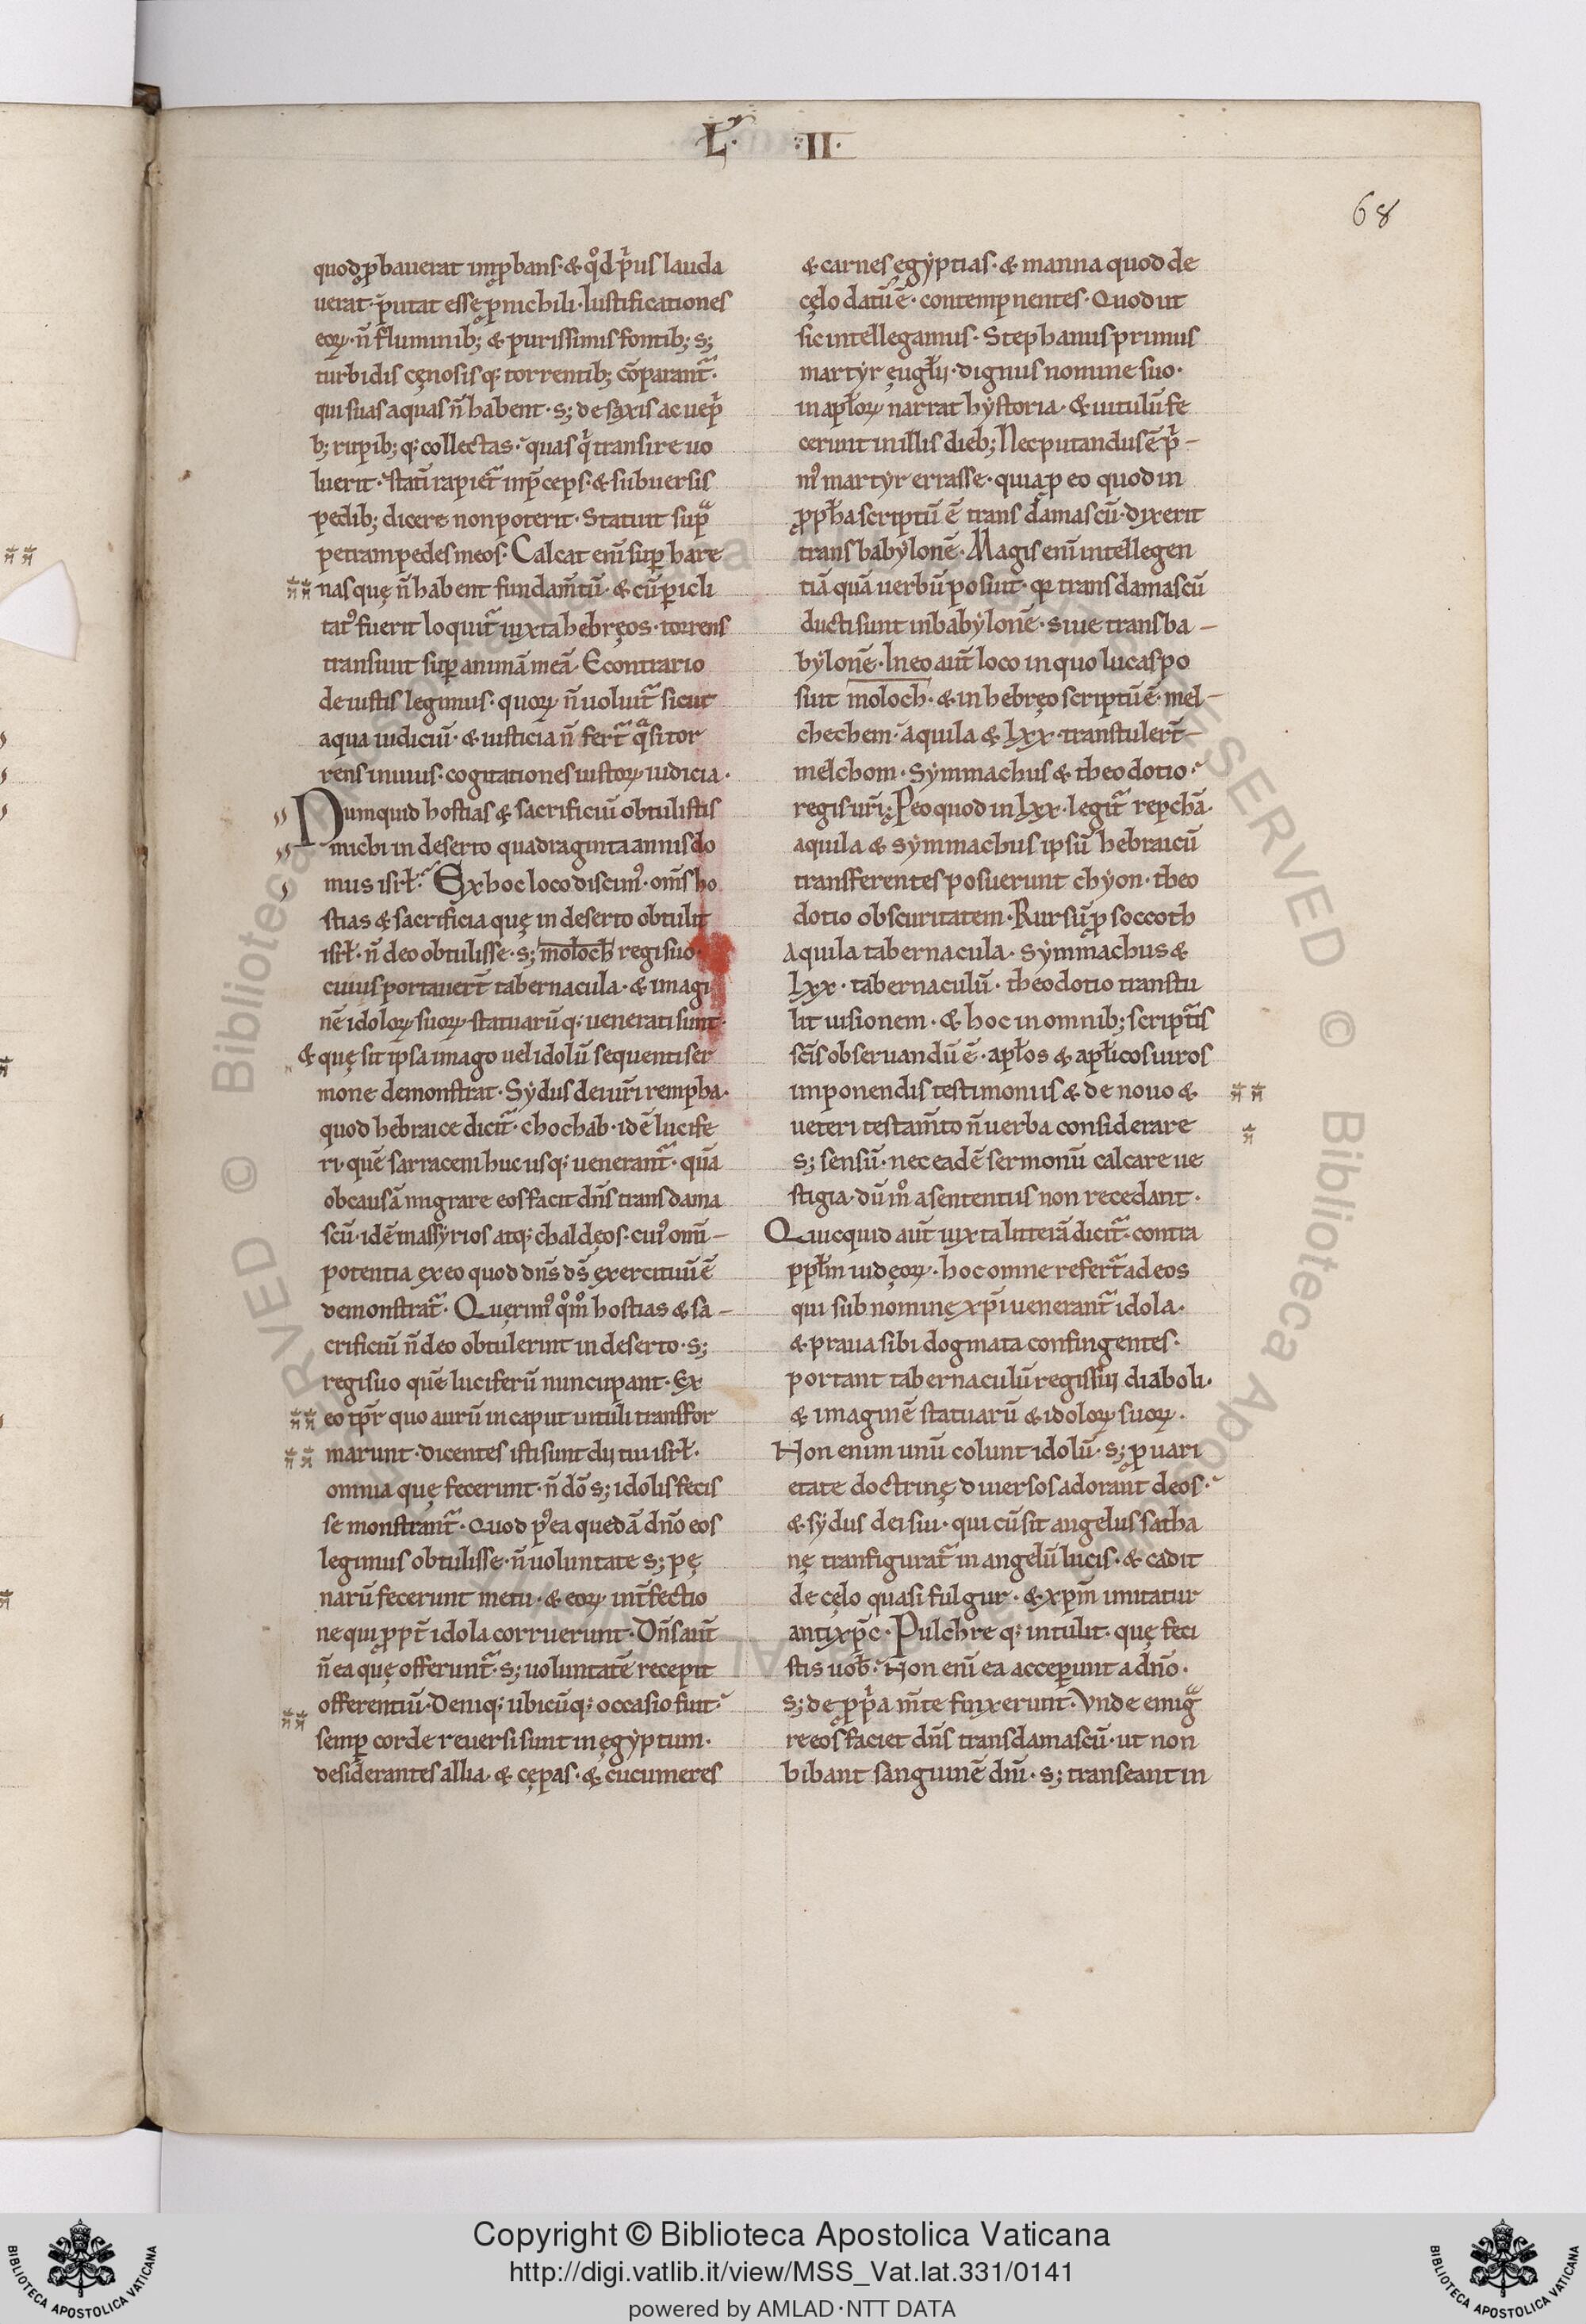 L. II.
68
quod ꝓbauerat imꝓbans. & qd pͥus lauda
uerat. putat esse ꝓ nichili. Iustificationes
eoꝝ. n̄ fluminib; & purissimis fontib; s;
turbidis cęnosisq: torrentib; cōparant᷑.
qui suas aquas n̄ habent. s; de saxis ac uepͥ
b; rupib; q: collectas. quas qͥ transire uo
luerit. statī rapiet᷑ in p̄ceps. & subuersis
pedib; dicere non poterit. Statuit supᷓ
petram pedes meos. Calcat enī suꝑ hare
nas quę n̄ habent fundam̄tū. & cū ꝑicli
tatꝰ fuerit loquit᷑ iuxta hebręos. torrens
transiuit suꝑ animā meā. Econtrario
de iustis legimus. quoꝝ n̄ uoluit᷑ sicut
aqua iudiciū. & iusticia n̄ fert᷑ qᷓsi tor
rens inuius. cogitationes iustoꝝ iudicia.
Numquid hostias & sacrificiū obtulistis
michi in deserto quadraginta annis do
mus isrł. Ex hoc loco discimꝰ. om̄s ho
stias & sacrificia quę in deserto obtulit
isrł. n̄ deo obtulisse. s; moloch regi suo.
cuius portauer̄t tabernacula. & imagi
nē idoloꝝ suoꝝ statuarūq: uenerati sunt.
& quę sit ipsa imago uel idolū sequenti ser
mone demonstrat. Sydus dei ur̄i rempha.
quod hebraice dicit᷑. chochab. id ē lucife
ri. quē sarraceni huc usq: uenerant᷑. quā
ob causā migrare eos facit dn̄s trans dama
scū. id ē in assyrios atq: chaldęos. cuiꝰ om̄i
potentia ex eo quod dn̄s ds̄ exercituū ē
demonstrat᷑. Querimꝰ qͦm̊ hostias & sa
crificiū n̄ deo obtulerint in deserto. s;
regi suo quē luciferū nuncupant. Ex
eo tp̄r quo aurū in caput uituli transfor
marunt. dicentes isti sunt dij tui isrł.
omnia quę fecerunt. n̄ dō s; idolis fecis
se monstrant᷑. Quod pꝰea quedā dn̄o eos
legimus obtulisse. n̄ uoluntate s; pę
narū fecerunt metu. & eoꝝ int̄fectio
ne qui ꝓpt̄ idola corruerunt. Dn̄s aut̄
n̄ ea quę offerunt᷑. s; uoluntatē recepit
offerentiū. Deniq: ubicūq: occasio fuit
semꝑ corde reuersi sunt in ęgyptum.
desiderantes allia. & cępas. & cucumeres
& carnes ęgyptias. & manna quod de
cęlo datū ē. contempnentes. Quod ut
sic intellegamus. Stephanus primus
martyr ęugłij. dignus nomine suo.
in apłoꝝ narrat hystoria. & uitulū fe
cerunt in illis dieb; Nec putandus ē pͥ
mꝰ martyr errasse. quia ꝓ eo quod in
ꝓpħa scriptū ē trans damascū. dixerit
trans babylonē. Magis enī intellegen
tiā quā uerbū posuit. qꝛ trans damascū
ducti sunt in babylonē. siue trans ba
bylonē. In eo aut̄ loco in quo lucas po
suit moloch. & in hebręo scriptū ē. mel
chechem. aquila & lxx. transtuler̄t
melchom. Symmachus & theodotio.
regis ur̄i. ꝓ eo quod in lxx. legit᷑ repchā.
aquila & symmachus ipsū hebraicū
transferentes posuerunt chyon. theo
dotio obscuritatem. Rursū ꝓ soccoth
Aquila tabernacula. Symmachus &
lxx. tabernaculū. theodotio transtu
lit uisionem. & hoc in omnib; scriptᷓis
scīs obseruandū ē. apłos & apłicos uiros
imponendis testimoniis & de nouo &
ueteri testam̄to n̄ uerba considerare
s; sensū. nec eadē sermonū calcare ue
stigia. dū m̊ a sententiis non recedant.
Quicquid aut̄ iuxta litterā dicit᷑. contra
ppłm iudęoꝝ. hoc omne refert᷑ ad eos
qui sub nomine xp̄i uenerant᷑ idola.
& praua sibi dogmata confingentes.
portant tabernaculū regis sui diaboli.
& imaginē statuarū & idoloꝝ suoꝝ.
Non enim unū colunt idolū. s; ꝓ uari
etate doctrinę diuersos adorant deos.
& sydus dei sui. qui cū sit angelus satha
nę tranfigurat᷑ in angelū lucis. & cadit
de cęlo quasi fulgur. & xp̄m imitatur
antixp̄c. Pulchre q: intulit. quę feci
stis uob̄. Non enī ea acceperunt a dn̄o.
s; de ꝓpͥa m̄te finxerunt. Vnde emigᷓ
re eos faciet dn̄s trans damascū. ut non
bibant sanguinē dn̄i. s; transeant in
Copyright © Biblioteca Apostolica Vaticana
http://digi.vatlib.it/view/MSS_Vat.lat.331/0141
powered by AMLAD·NTT DATA
BIBLIOTECA APOSTOLICA VATICANA
BIBLIOTECA APOSTOLICA VATICANA